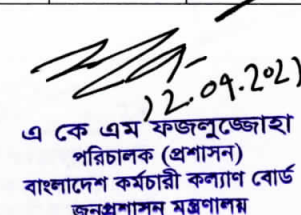 12.09.2021
এ কে এম ফজলুজ্জোহা
পরিচালক (প্রশাসন)
বাংলাদেশ কর্মচারী কল্যাণ বোর্ড
জনপ্রশাসন মন্ত্রণালয়